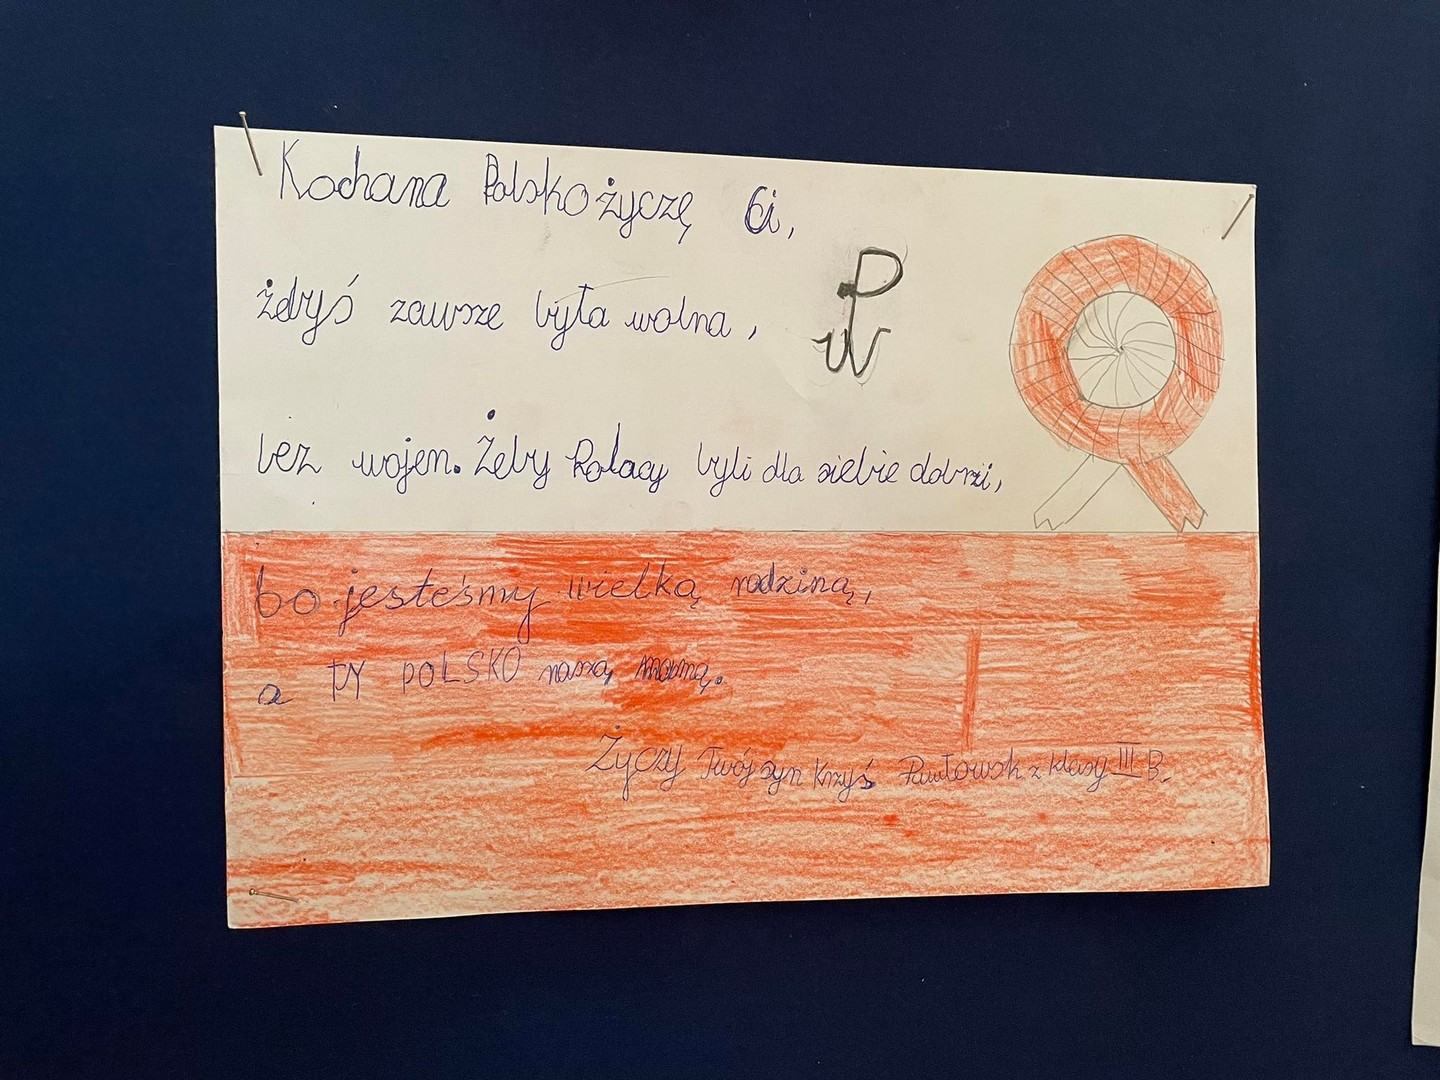 Kochana Polsko życzę Ci,
żebyś zawsze była wolna,
bez wojen. Żeby Polacy byli dla siebie dobrzi,
bo jesteśmy wielką rodziną,
a TY POLSKO naszą mamą.
Życzy Twój syn Krzyś z klasy III B.